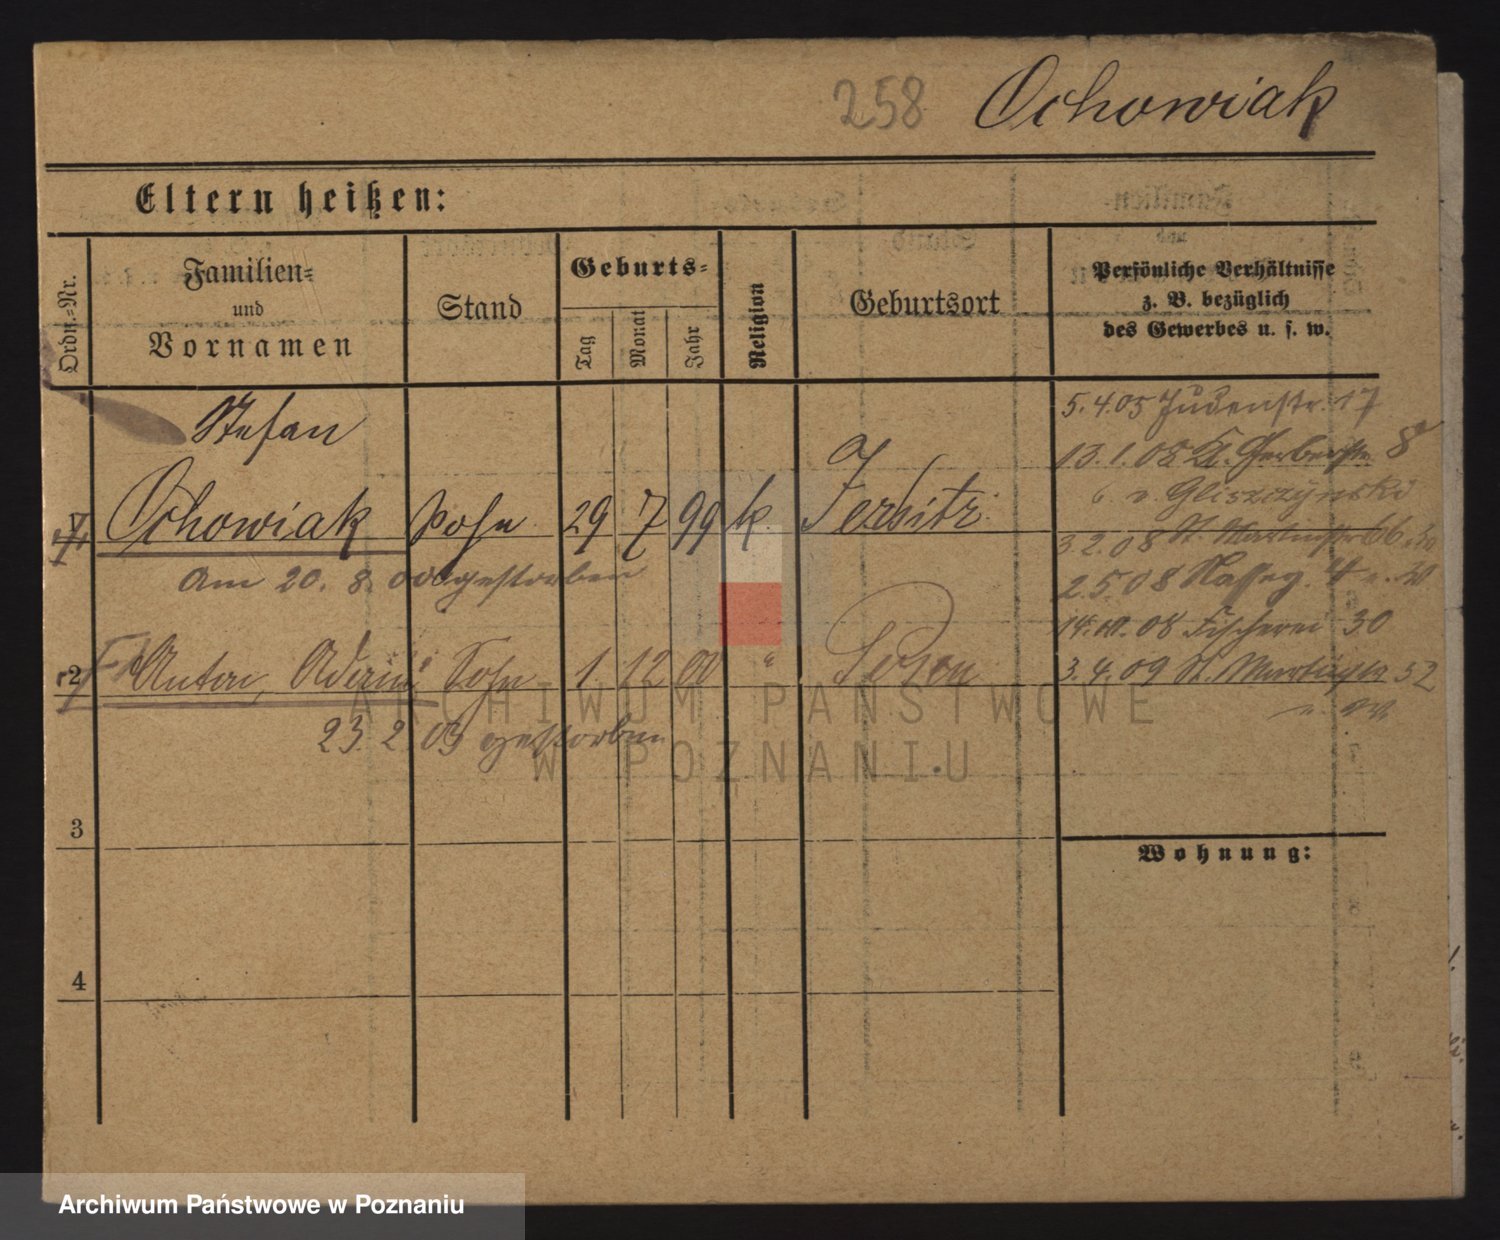 258 Ochowiak
Eltern heißen:
Ordn.-Nr.
Familien-
und
Vornamen
Stand
Geburts-
Tag
Monat
Jahr
Religion
Geburtsort
Persönliche Verhältnisse
z. B. bezüglich
des Gewerbes u. s. w.
Stefan
Ochowiak Sohn 29 7 99 k. Jersitz
Am 20. 8. 00 gestorben
2 Anton, Sohn 1. 12 00 " Posen
23 2 03 gestorben
3
4
5.4.05 Judenstr. 17
13.1.08 Kl. Gerberstr. 8
b. v. Gliszczynski
3 2. 08 St. Martinstr 66
2.5.08 Nasseg. 4
14. 08 Fischerei 30
3.4.09 St. Martinstr 52
Wohnung:
ARCHIWUM PAŃSTWOWE
W POZNANIU
Archiwum Państwowe w Poznaniu